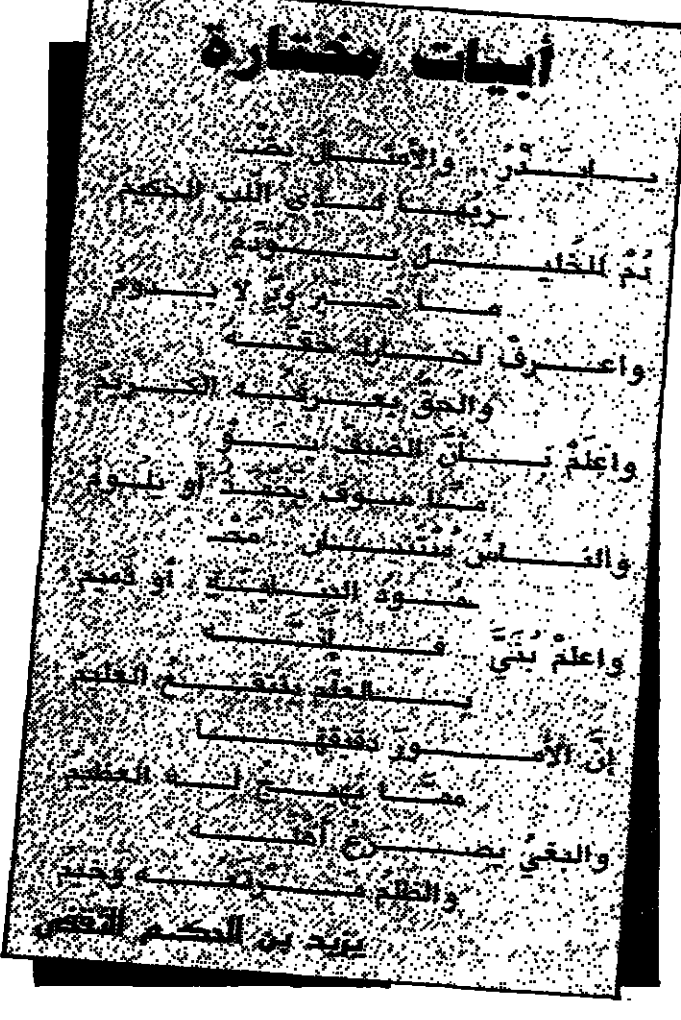 أبيات مختارة
يا بدرُ والأمثال يضْـ
ـربُها لذي اللب الحكيم
دُمْ للخليل بودّه
ما خير ودٍّ لا يدوم
واعرفْ لجارك حقّه
والحقّ يعرفه الكريم
واعلمْ بأن الضيف يو
ماً سوف يحمد أو يلوم
والناسُ مُبْتنيان محْـ
ـمود البناية أو ذميم
واعلمْ بُنَيَّ فإنّه
بالعلم ينتفع العليم
إنّ الأمورَ دقيقها
مما يهيج له العظيم
والبغيُ يصرعُ أهله
والظلمُ مرتعه وخيم
يزيد بن الحكم الثقفي